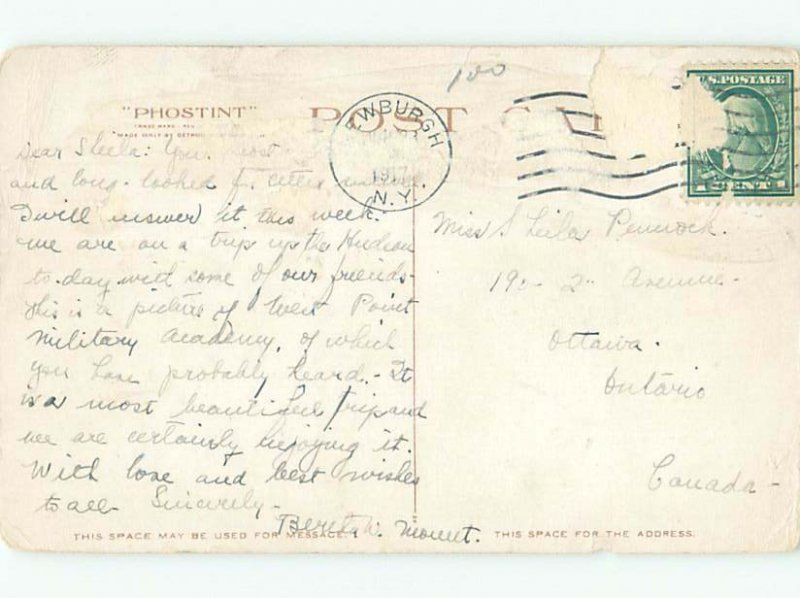 100
"PHOSTINT"
POST CA
TRADE MARK
MADE ONLY BY DETROIT
U.S. POSTAGE
1 CENT 1
NEWBURGH
1917
N.Y.
Dear Sheila: Your most
and long-looked for letter
I will answer it this week.
We are on a trip up the Hudson
to-day with some of our friends-
This is a picture of West Point
Military Academy, of which
you have probably heard.- It
is a most beautiful trip and
we are certainly enjoying it.
With love and best wishes
to all. Sincerely-
Mount.
Miss Sheila Pennock.
190- 2nd Avenue-
Ottawa.
Ontario
Canada-
THIS SPACE MAY BE USED FOR MESSAGE.
THIS SPACE FOR THE ADDRESS.